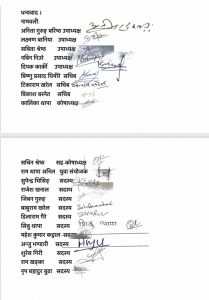 धन्यवाद ।
नामवली:
अनिता गुरुङ बरिष्ठ उपाध्यक्ष
लक्ष्मण बानिया उपाध्यक्ष
सबिता श्रेष्ठ उपाध्यक्ष
नबिन गिउरे उपाध्यक्ष
दिपक कार्की उपाध्यक्ष
बिष्णु प्रसाद घिमीरे सचिब
टिकाराम खरेल सचिब
बिकाश बस्नेत सचिब
कालिका थापा कोषाध्यक्ष
सचिन श्रेष्ठ सह-कोषाध्यक्ष
राम थापा अनिल युवा संयोजक
सुपेन्द्र घिसिङ्ग सदस्य
राजेश खनाल सदस्य
जिबन गुरुङ सदस्य
बाबुराम खरेल सदस्य
डिलाराम गैरे सदस्य
सिन्धु थापा सदस्य सिन्धु थापा
महेश कुमार कट्टाल सदस्य
अन्जु भण्डारी सदस्य Anju
शुरेस गिरी सदस्य
राम खड्का सदस्य
नृप बहादुर बुढा सदस्य